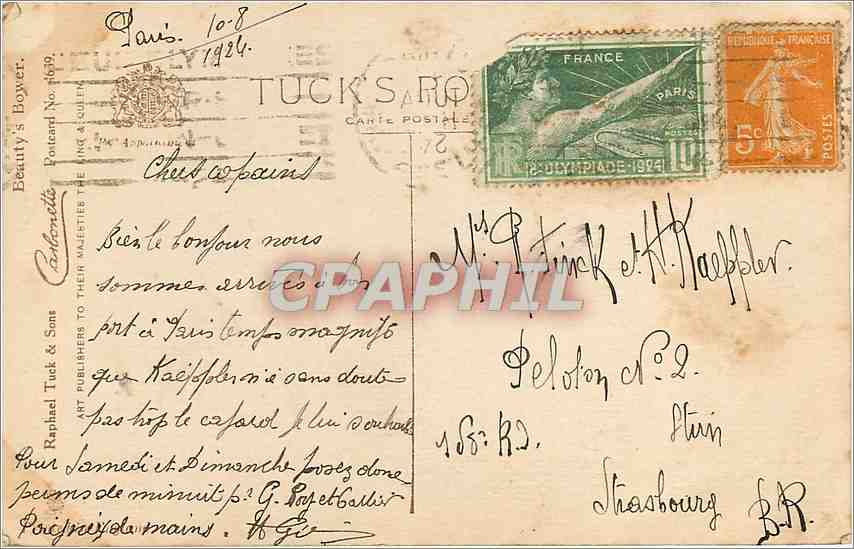 Paris. 10-8
1924.
TUCK'S PO
CARTE POSTALE
Beauty's Bower.
Carbonette Postcard No.
Raphael Tuck & Sons
ART PUBLISHERS TO THEIR MAJESTIES THE KING & QUEEN
FRANCE
PARIS
POSTES
RF
8e OLYMPIADE-1924
10
REPUBLIQUE FRANÇAISE
5c
POSTES
AOUT
24
Chers copains
Bien le bonjour nous
sommes arrivés à bon
port à Paris temps magnifi
que Kaëppler n'é sans doute
pas trop le cafard Je lui souhaite
Pour Samedi et Dimanche posez donc
perms de minuit pr G. et
Poignée de mains.
Mrs. et H. Kaëppler.
Peloton No. 2.
158e R.I.
Stirn
Strasbourg
B.R.
CPAPHIL